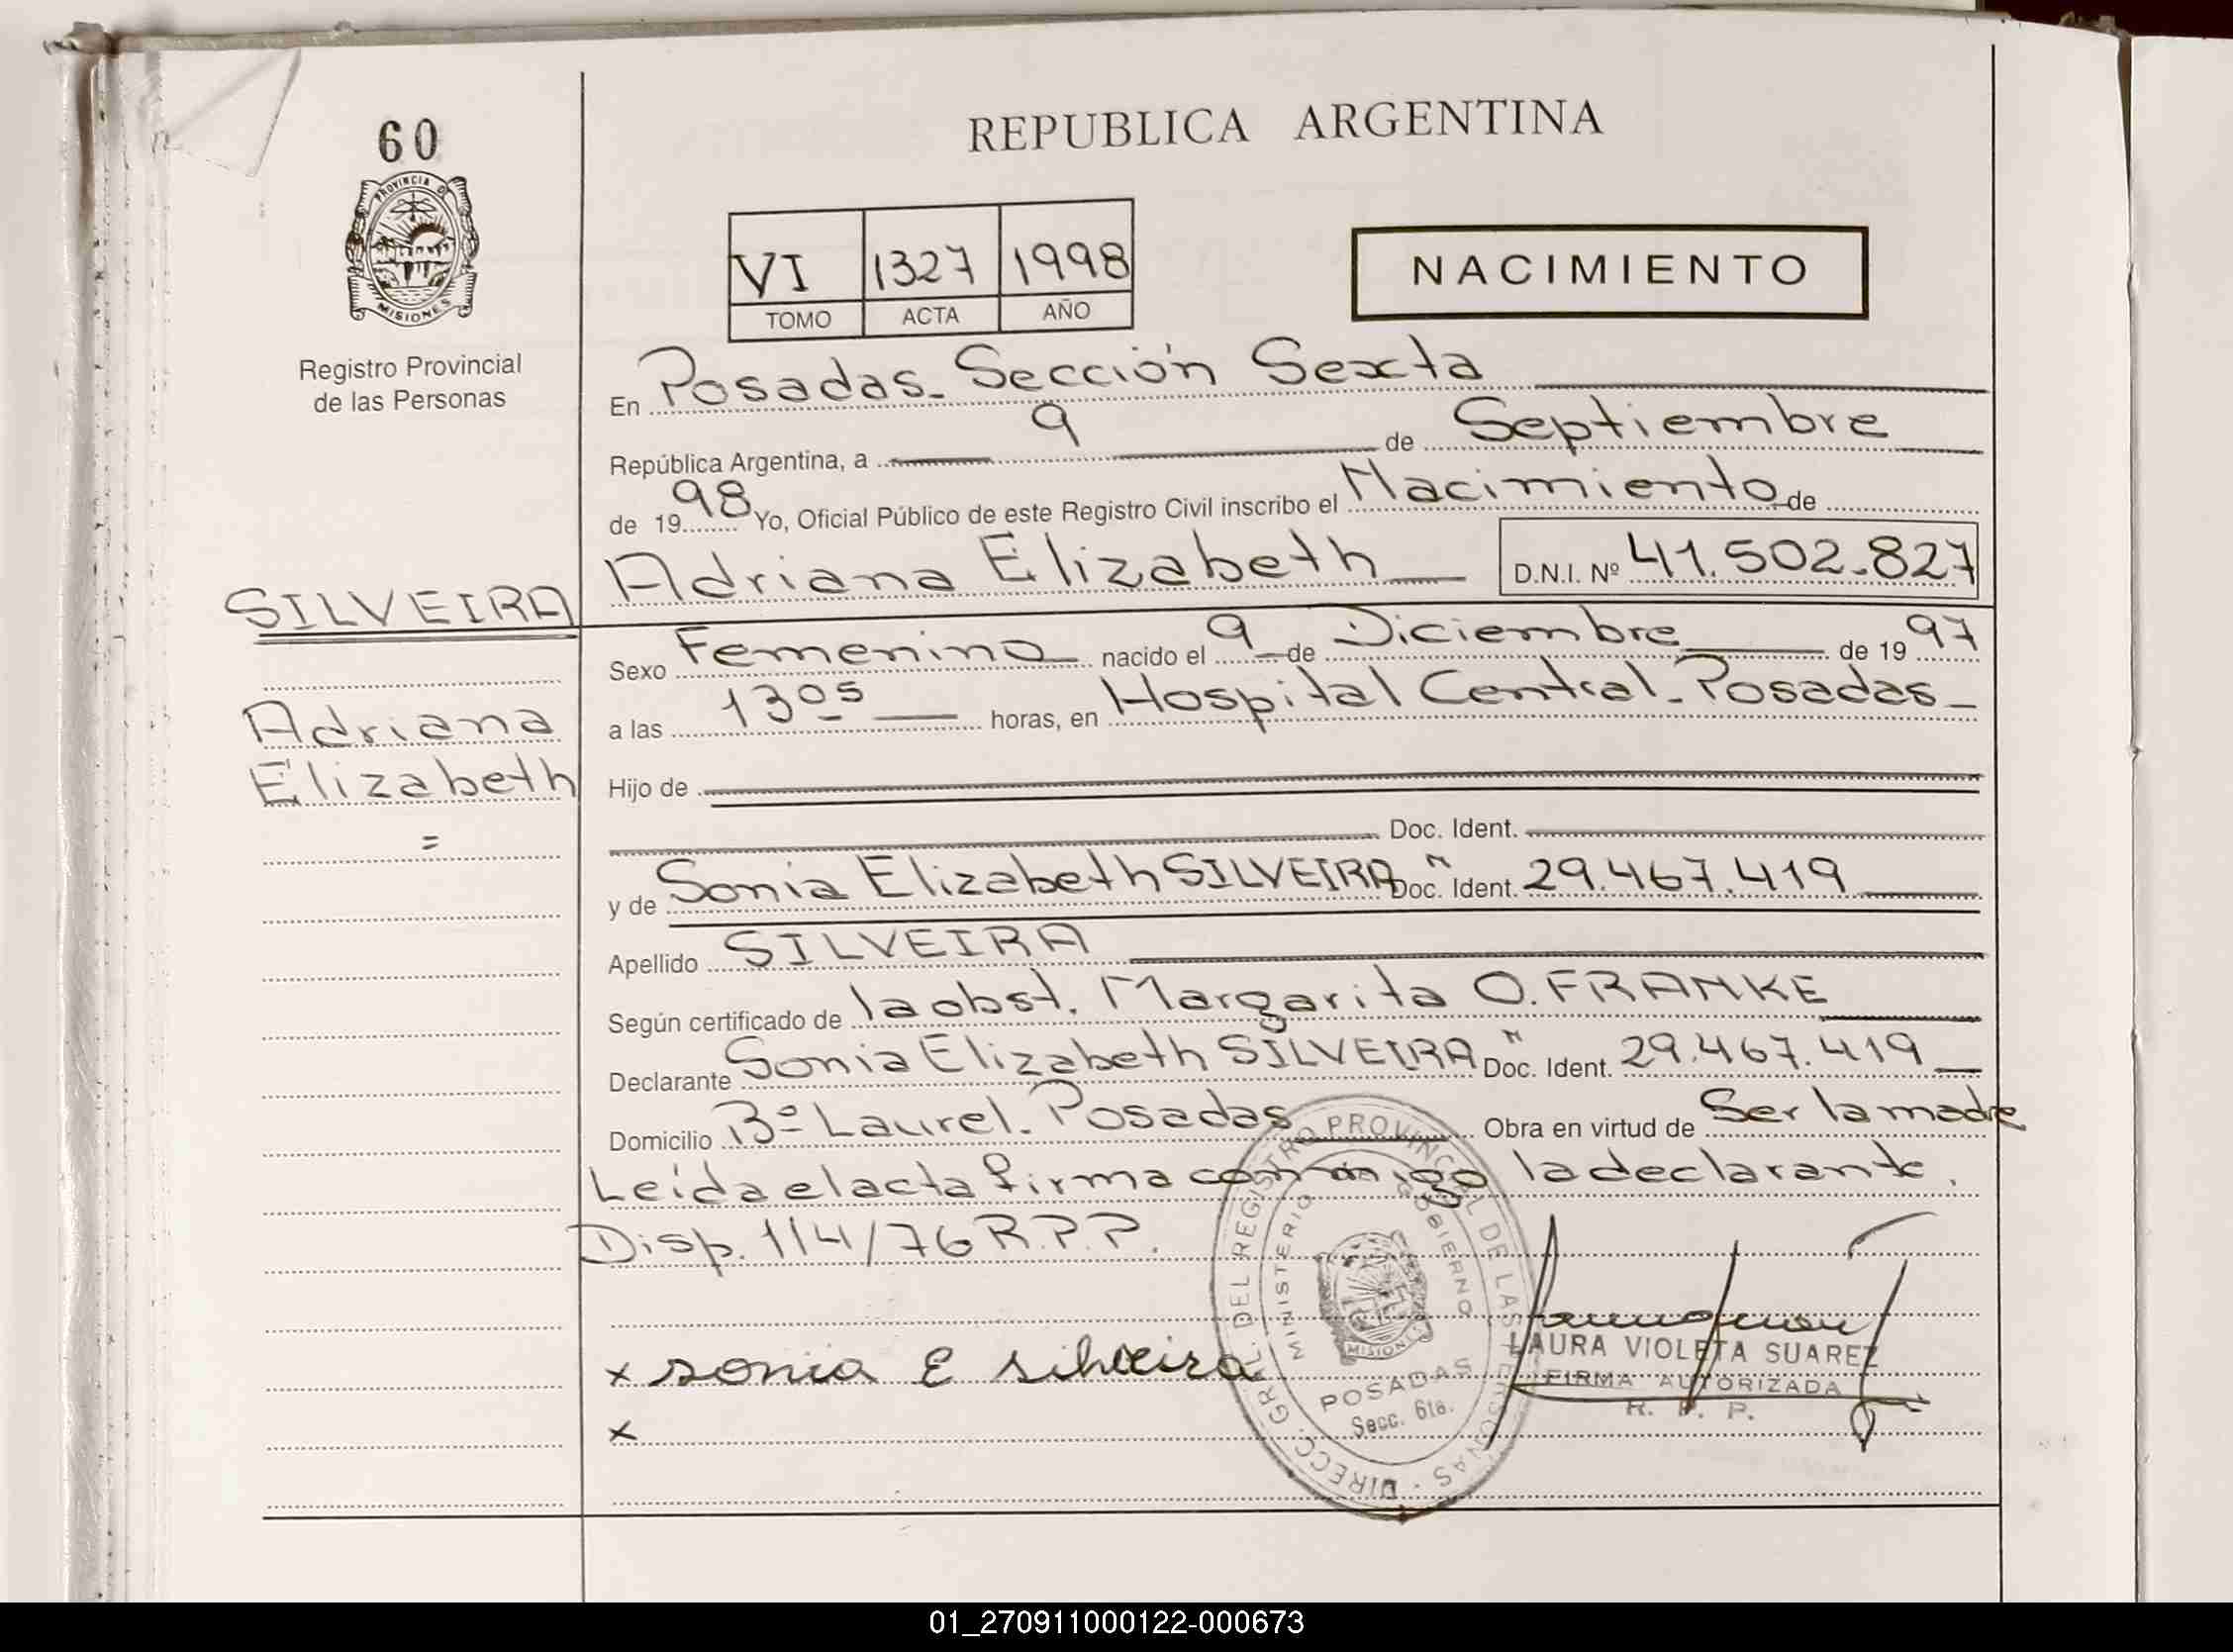 60
PROVINCIA DE
MISIONES
Registro Provincial
de las Personas
SILVEIRA
Adriana
Elizabeth
=
REPUBLICA ARGENTINA
VI 1327 1998
TOMO ACTA AÑO
NACIMIENTO
En Posadas - Sección Sexta
República Argentina, a 9 de Septiembre
de 1998 Yo, Oficial Público de este Registro Civil inscribo el Nacimiento de
Adriana Elizabeth D.N.I. Nº 41.502.827
Sexo Femenino nacido el 9 de Diciembre de 1997
a las 13 05 horas, en Hospital Central - Posadas -
Hijo de
Doc. Ident.
y de Sonia Elizabeth SILVEIRA Doc. Ident. 29.467.419
Apellido SILVEIRA
Según certificado de la obst. Margarita O. FRANKE
Declarante Sonia Elizabeth SILVEIRA Doc. Ident. 29.467.419
Domicilio Bº Laurel - Posadas Obra en virtud de Ser la madre
Leída el acta firma conmigo la declarante.
Disp. 114/76 R.P.P.
x sonia E silveira
x
DIRECC. GRAL. DEL REGISTRO PROVINCIAL DE LAS PERSONAS
MINISTERIO GOBIERNO
MISIONES
POSADAS
Secc. 6ta.
LAURA VIOLETA SUAREZ
FIRMA AUTORIZADA
R. P. P.
01_270911000122-000673